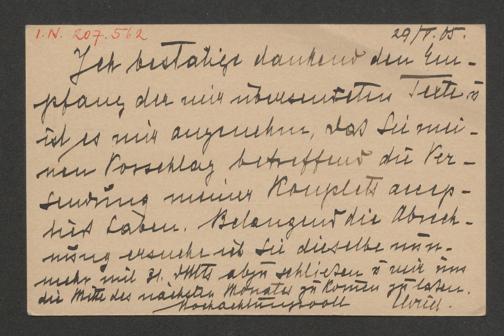 I.N. 207.562
29/V. 05.
Ich bestätige dankend den Em-
pfang der mir übersendeten Texte u
ist es mir angenehm, das Sie mei-
nen Vorschlag betreffend die Ver-
sendung meiner Kouplets accep-
tirt haben. Belangend die Abrech-
nung ersuche ich Sie dieselbe nun-
mehr mit 31. dMts abzuschließen u mir um
die Mitte des nächsten Monates zu komen zu lassen.
Hochachtungsvoll